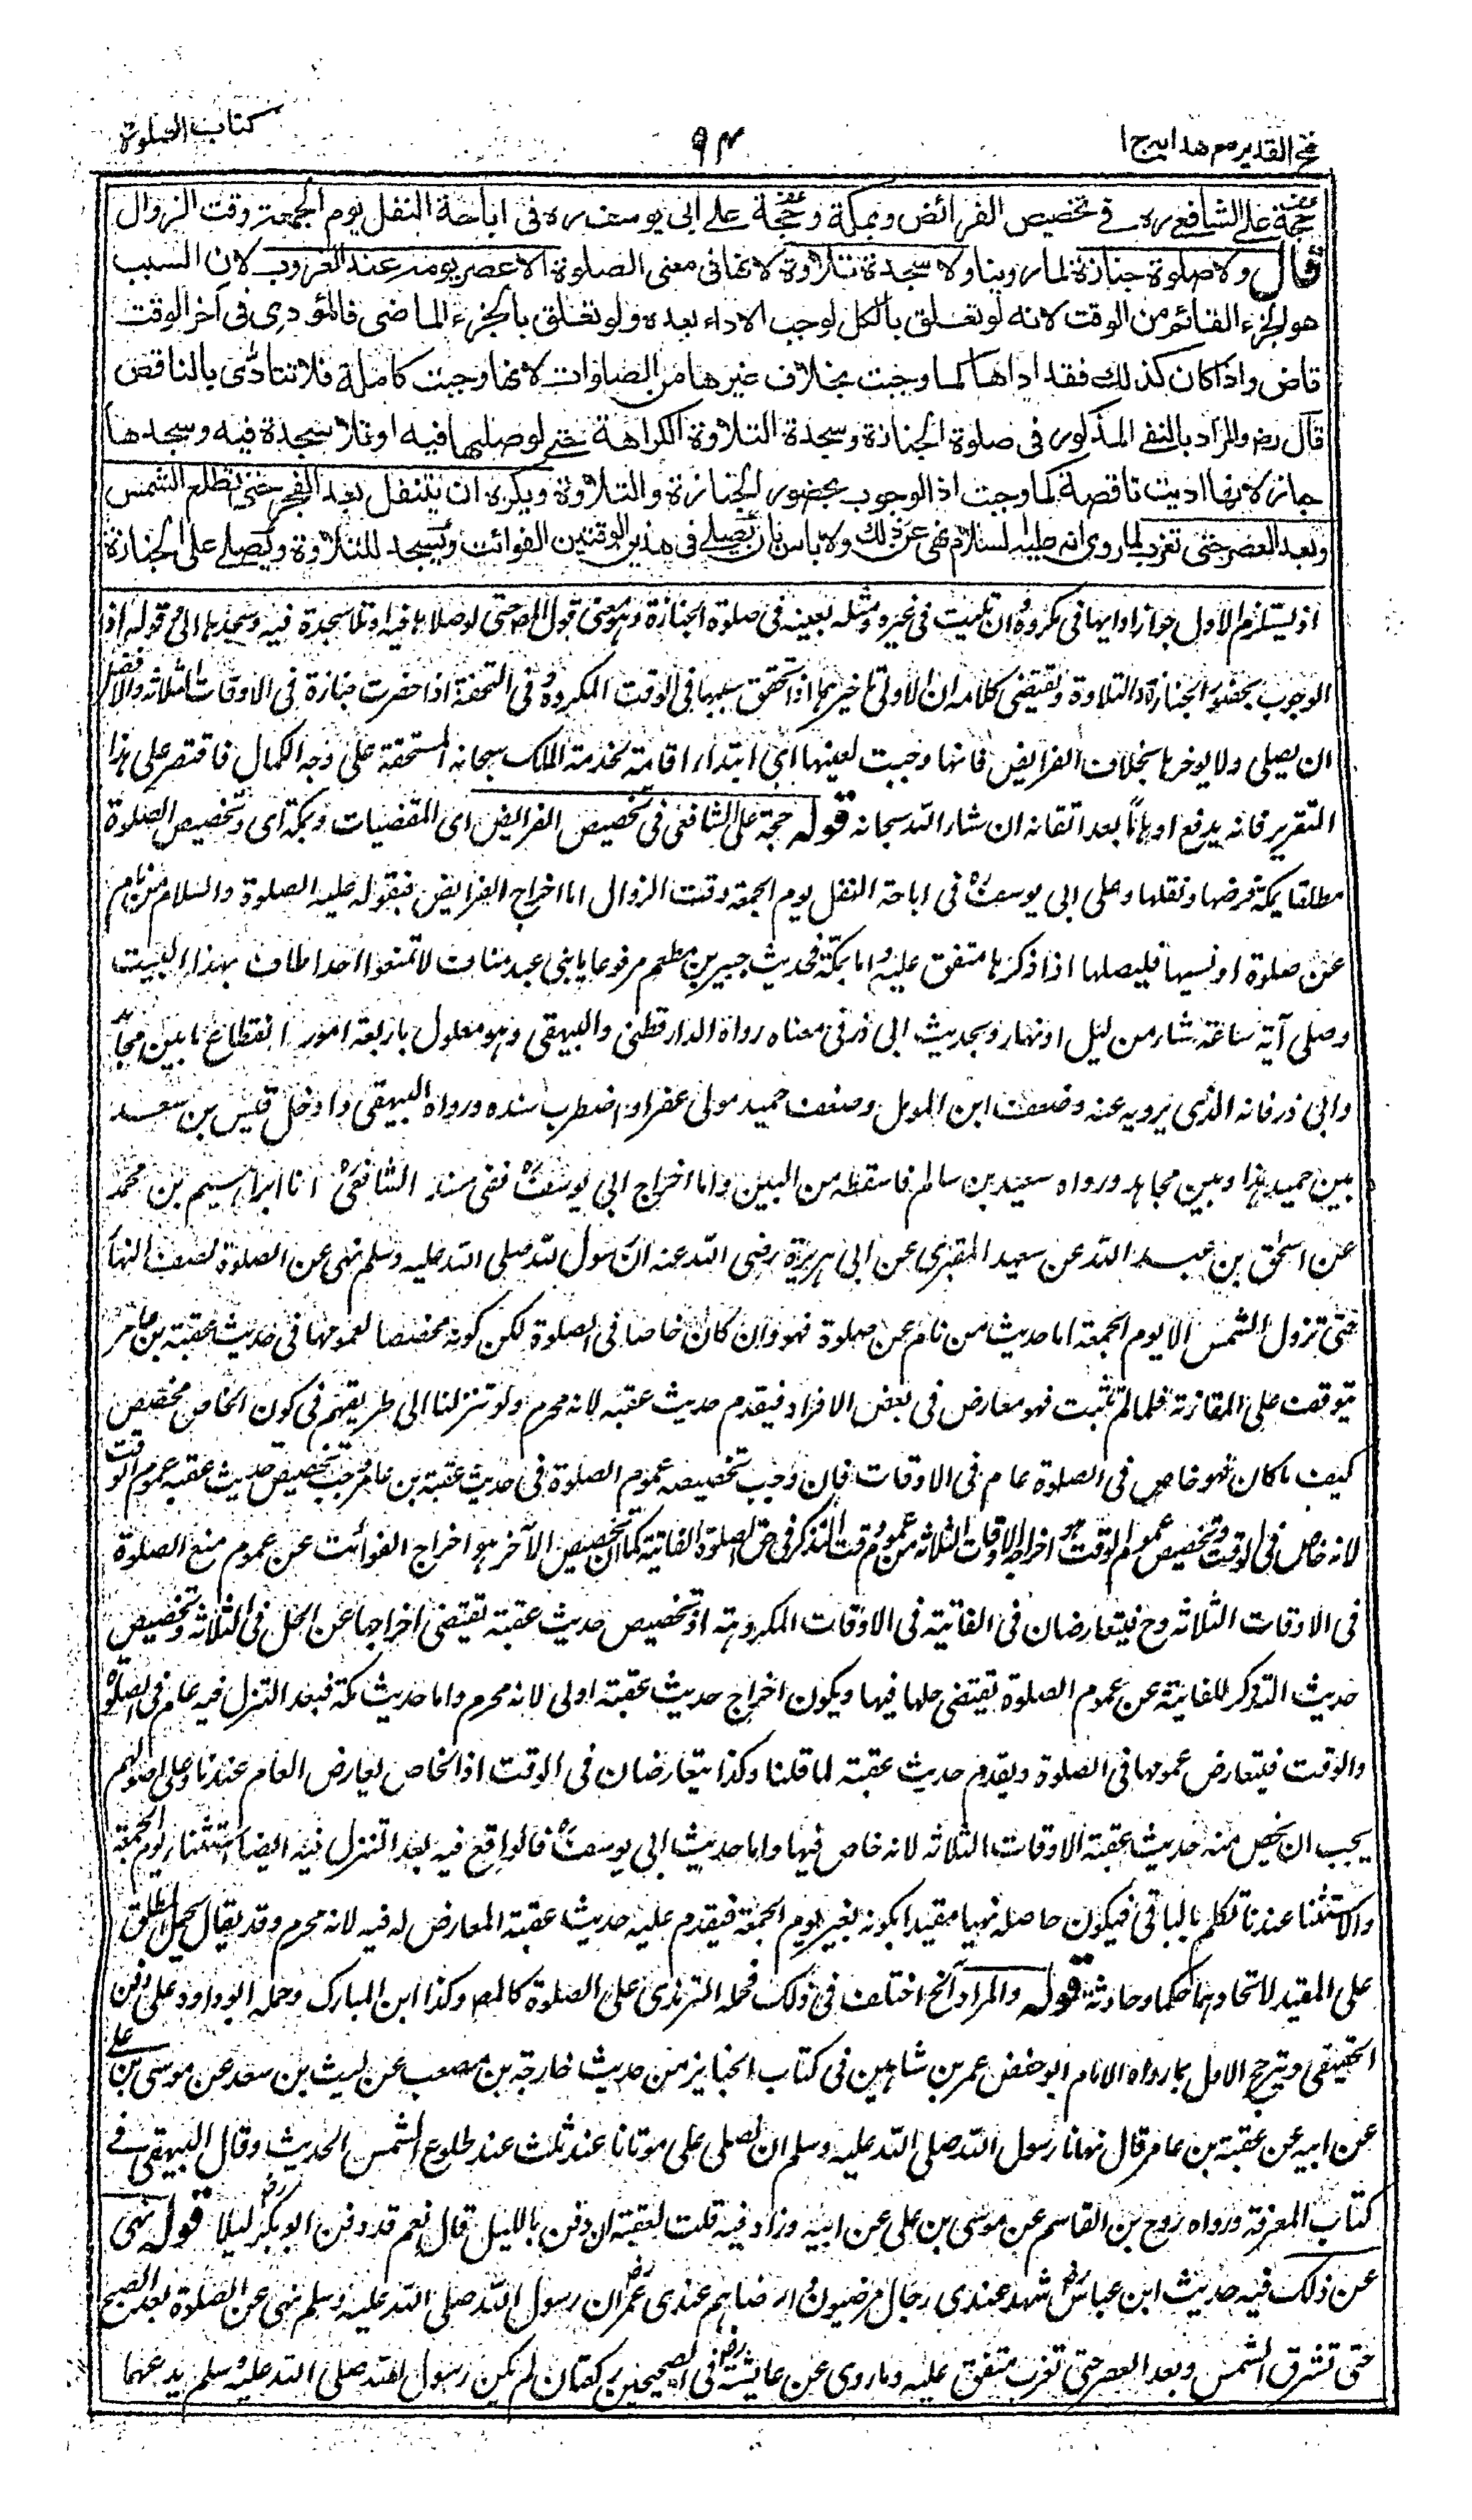 فتح القدير مع هدايہ ج ا
٩٤
كتاب الصلوة
حجة على الشافعى رہ فى تخصيص الفرائض وبمكة وحجة على ابى يوسف رہ فى اباحة النفل يوم الجمعة وقت الزوال
قال ولا صلوة جنازة لما روينا ولا سجدة تلاوة لانها فى معنى الصلوة الا عصر يومه عند الغروب لان السبب
هو الجزء القائم من الوقت لانه لو تعلق بالكل لوجب الاداء بعده ولو تعلق بالجزء الماضى فالمؤدى فى آخر الوقت
قاض واذا كان كذلك فقد اداها كما وجبت بخلاف غيرها من الصلوات لانها وجبت كاملة فلا تتأدى بالناقص
قال رض والمراد بالنفى المذكور فى صلوة الجنازة وسجدة التلاوة الكراهة حتى لو صليهما فيه او تلا سجدة فيه وسجدها
جاز لانها اديت ناقصة كما وجبت اذ الوجوب بحضور الجنازة والتلاوة ويكره ان يتنفل بعد الفجر حتى تطلع الشمس
وبعد العصر حتى تغرب لما روى انه عليه السلام نهى عن ذلك ولا بأس بان يصلى فى هذين الوقتين الفوائت ويسجد للتلاوة ويصلى على الجنازة
اذ يستلزم الاول جواز ادايها فى مكروه ان تليت فى غيره ومثله بعينه فى صلوة الجنازة وهو معنى قول المص حتى لو صلاها فيه او تلا سجدة فيه وسجدها الى قوله اذ
الوجوب بحضور الجنازة والتلاوة وتقتضى كلامه ان الاولى تاخيرهما اذا تحقق سببهما فى الوقت المكروه وفى التحفة اذا حضرت جنازة فى الاوقات الثلاثة والافضل
ان يصلى ولا يوخرها بخلاف الفرايض فانها وجبت لعينها اى ابتداء اقامة لخدمة الملك سبحانه المستحقة على وجه الكمال فاقتصر على هذا
التقرير فانه يدفع اوهاما بعد اتقانه ان شاء الله سبحانه قوله حجة على الشافعى فى تخصيص الفرايض اى المقضيات وبمكة اى وتخصيص الصلوة
مطلقا بمكة فرضها ونفلها وعلى ابى يوسف رح فى اباحة النفل يوم الجمعة وقت الزوال اما اخراج الفرايض فبقوله عليه الصلوة والسلام من نام
عن صلوة او نسيها فليصلها اذا ذكرها متفق عليه واما بمكة فحديث جبير بن مطعم مرفوعا يا بنى عبد مناف لا تمنعوا احدا طاف بهذا البيت
وصلى آية ساعة شاء من ليل او نهار وبحديث ابى ذر فى معناه رواه الدارقطنى والبيهقى وهو معلول باربعة امور انقطاع ما بين مجاهد
وابى ذر فانه الذى يرويه عنه وضعف ابن المومل وضعف حميد مولى عفراء واضطرب سنده ورواه البيهقى وادخل قيس بن سعد
بين حميد هذا وبين مجاهد ورواه سعيد بن سالم فاسقطه من البين واما اخراج ابى يوسف رح ففى مسند الشافعى رح انا ابراهيم بن محمد
عن اسحق بن عبد الله عن سعيد المقبرى عن ابى هريرة رضى الله عنه ان رسول الله صلى الله عليه وسلم نهى عن الصلوة نصف النهار
حتى تزول الشمس الا يوم الجمعة اما حديث من نام عن صلوة فهو وان كان خاصا فى الصلوة لكن كونه مخصصا لعمومها فى حديث عقبة بن عامر
يتوقف على المقارنة فلما لم تثبت فهو معارض فى بعض الافراد فيقدم حديث عقبه لانه محرم ولو تنزلنا الى طريقهم فى كون الخاص مخصص
كيف ما كان فهو خاص فى الصلوة عام فى الاوقات فان وجب تخصيصه عموم الصلوة فى حديث عقبة بن عامر وجب تخصيص حديث عقبه عموم الوقت
لانه خاص فى الوقت وتخصيص عموم الوقت هو اخراج الاوقات الثلاثة من عموم وقت التذكر فى حق الصلوة الفائتة كما ان تخصيص الآخر هو اخراج الفوائت عن عموم منع الصلوة
فى الاوقات الثلاثه وح فيتعارضان فى الفائتة فى الاوقات المكروهة اذ تخصيص حديث عقبة تقتضى اخراجها عن الحل فى الثلاثة وتخصيص
حديث التذكر للفائتة عن عموم الصلوة يقتضى حلها فيها ويكون اخراج حديث عقبة اولى لانه محرم واما حديث مكة فبعد التنزل فيه عام فى الصلوة
والوقت فيتعارض عمومها فى الصلوة ويقدم حديث عقبة لما قلنا وكذا يتعارضان فى الوقت اذ الخاص يعارض العام عندنا وعلى اصولهم
يجب ان يخص منه حديث عقبة الاوقات الثلاثه لانه خاص فيها واما حديث ابى يوسف رح فالواقع فيه بعد التنزل فيه ايضا استثناء يوم الجمعة
والاستثنا عندنا تكلم بالباقى فيكون حاصله نهيا مقيدا بكونه بغير يوم الجمعة فيقدم عليه حديث عقبة المعارض له فيه لانه محرم وقد يقال يحمل المطلق
على المقيد لاتحادهما حكما وحادثة قوله والمراد الخ اختلف فى ذلك فحمله الترمذى على الصلوة كالمص وكذا ابن المبارك وحمله ابو داود على دفن
الحقيقى ويترجح الاول بما رواه الامام ابو حفص عمر بن شاهين فى كتاب الجنايز من حديث خارجة بن مصعب عن ليث بن سعد عن موسى بن على
عن ابيه عن عقبة بن عامر قال نهانا رسول الله صلى الله عليه وسلم ان نصلى على موتانا عند ثلث عند طلوع الشمس الحديث وقال البيهقى فى
كتاب المعرفة ورواه روح بن القاسم عن موسى بن على عن ابيه وزاد فيه قلت لعقبة ان دفن بالليل قال نعم قد دفن ابو بكر رض ليلا قوله نهى
عن ذلك فيه حديث ابن عباس رض شهد عندى رجال مرضيون وارضاهم عندى عمر رض ان رسول الله صلى الله عليه وسلم نهى عن الصلوة بعد الصبح
حتى تشرق الشمس وبعد العصر حتى تغرب متفق عليه وما روى عن عايشة رض فى الصحيحين ركعتان لم يكن رسول الله صلى الله عليه وسلم يدعهما